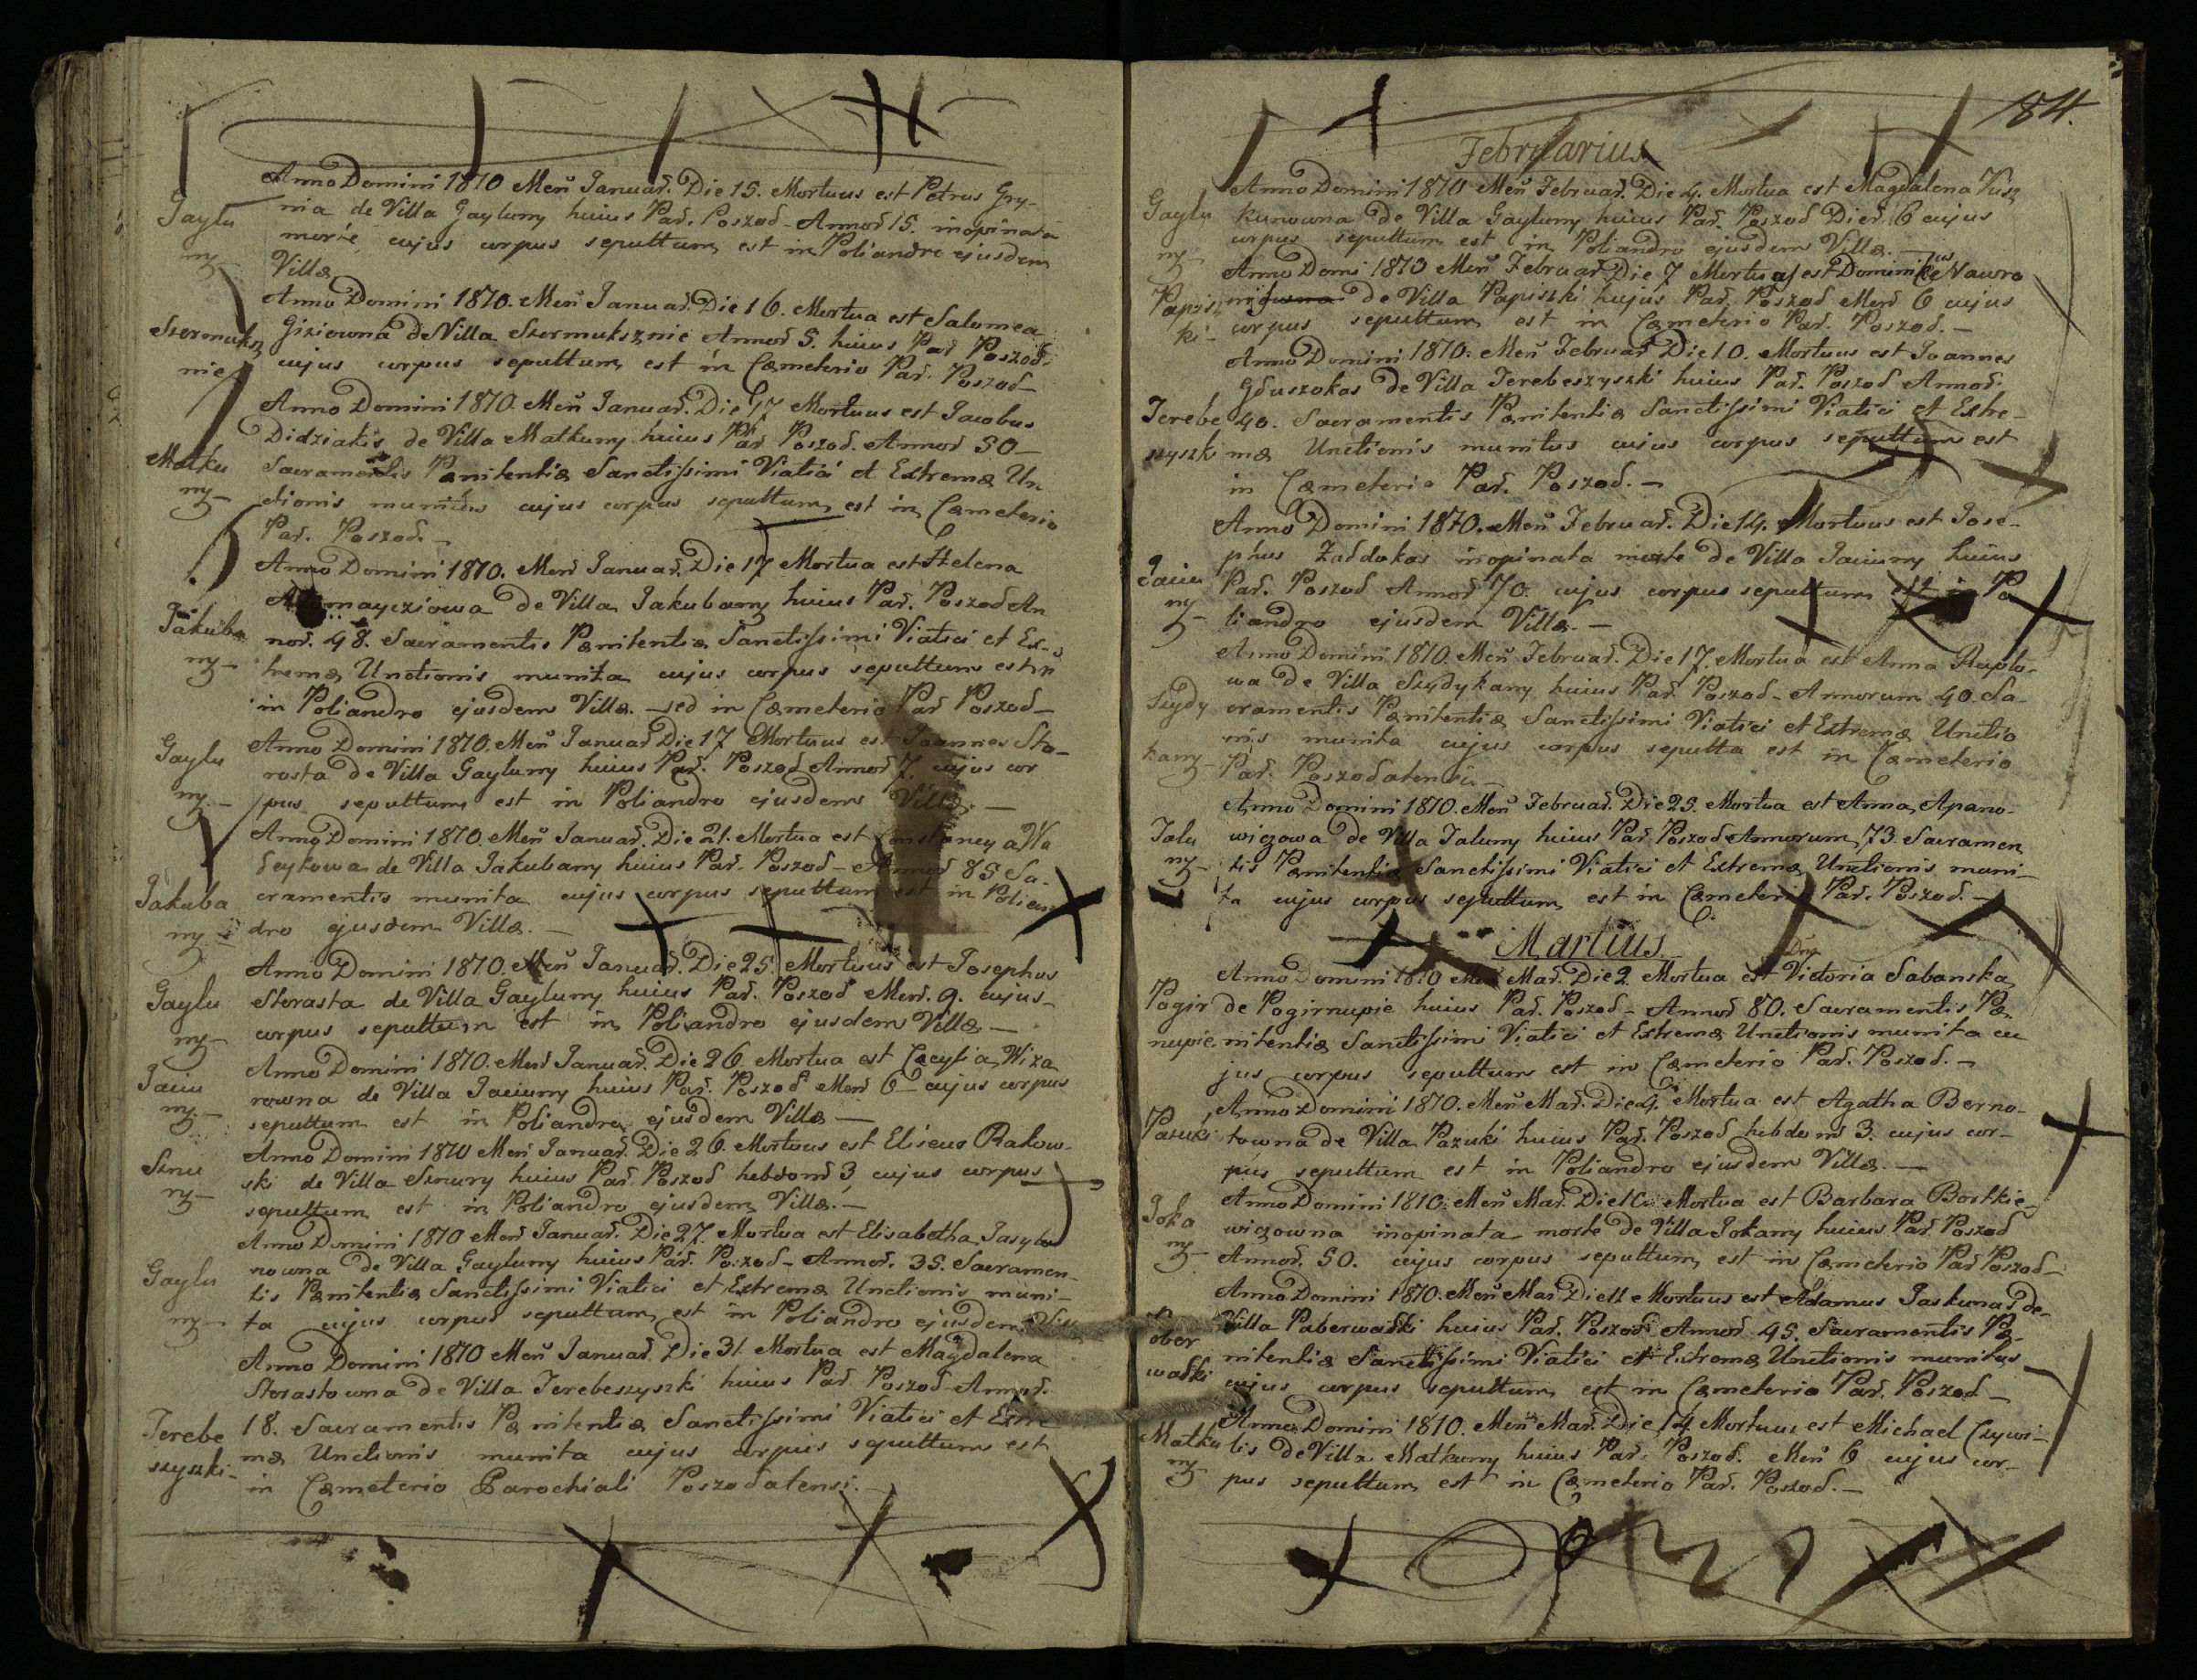 Anno Domini 1810 Meñ Januar. Die 15. Mortuus est Petrus Gry-
Gaylu nia de Villa Gayluny huius Par. Poszod - Annor 15. inopinata
ny - morte, cujus corpus sepultum est in Poliandro ejusdem
Villæ
Anno Domini 1810. Meñ Januar. Die 16. Mortua est Salomea
Szermuksz Giziowna de Villa Szermuksznie Annor 5. huius Par Poszod.
nie cujus corpus sepultum est in Cæmeterio Par. Poszod -
Anno Domini 1810. Meñ Januar. Die 17 Mortuus est Jacobus
Didziakis de Villa Matkuny huius Par. Poszod. Annor 50 -
Matku Sacramentis Pænitentiæ Sanctissimi Viatici et Extremæ Un
ny - ctionis munitus cujus corpus sepultum est in Cæmeterio
Par. Poszod. -
Anno Domini 1810. Men Januar. Die 17 Mortua est Helena
de Villa Jakubany huius Par. Poszod An
Jakuba nor. 48. Sacramentis Pænitentiæ Sanctissimi Viatici et Ex-
ny - tremæ Unctionis munita cujus corpus sepultum est
in Poliandro ejusdem Villæ. - sed in Cæmeterio Par Poszod -
Anno Domini 1810. Meñ Januar Die 17 Mortuus est Joannes Sto-
Gaylu rasta de Villa Gayluny huius Par. Poszod Annor 7. cujus cor
ny. - pus sepultum est in Poliandro ejusdem Villæ. -
Anno Domini 1810. Meñ Januar. Die 21. Mortua est Constancya Wa
deykowa de Villa Jakubany huius Par. Poszod - Annor 85 Sa-
Jakuba cramentis munita cujus corpus sepultum est in Polian
ny. - dro ejusdem Villæ. -
Anno Domini 1810. Meñ Januar. Die 25. Mortuus est Josephus
Gaylu Storasta de Villa Gayluny huius Par. Poszod Men. 9. cujus
ny - corpus sepultum est in Poliandro ejusdem Villæ -
Anno Domini 1810. Men Januar. Die 26. Mortua est Cæcylia Wiza
Jaciu rowna de Villa Jaciuny huius Par. Poszod Men 6 - cujus corpus
ny - sepultum est in Poliandro ejusdem Villæ -
Anno Domini 1810 Meñ Januar. Die 26. Mortuus est Eliseus Rakow-
Sznu ski de Villa Sznury huius Par. Poszod hebdom 3, cujus corpus
ry - sepultum est in Poliandro ejusdem Villæ. -
Anno Domini 1810 Men Januar. Die 27. Mortua est Elisabetha Jasylu
nowna de Villa Gayluny huius Par. Poszod - Annor. 35. Sacramen-
Gaylu tis Pænitentiæ Sanctissimi Viatici et Extremæ Unctionis muni-
ny - ta cujus corpus sepultum est in Poliandro ejusdem
Anno Domini 1810 Meñ Januar. Die 31. Mortua est Magdalena
Storastowna de Villa Terebeszyszki huius Par. Poszod Annor.
Terebe 18. Sacramentis Pænitentiæ Sanctissimi Viatici et Extre
szyszki - mæ Unctionis munita cujus corpus sepultum est
in Cæmeterio Parochiali Poszodatensi. -
184.
Februarius
Anno Domini 1810 Meñ Februar. Die 4. Mortua est Magdalena Kusz
Gaylu kunowna de Villa Gayluny huius Par. Poszod Dier. 6 cujus
ny - corpus sepultum est in Poliandro ejusdem Villæ. -
Anno Domi 1810 Meñ Februar Die 7 Mortuus est Dominicus Nawro
Papisz de Villa Papiszki hujus Par. Poszod Men 6 cujus
ki - corpus sepultum est in Cæmeterio Par. Poszod. -
Anno Domini 1810. Meñ Februar Die 10. Mortuus est Joannes
Gduszokas de Villa Terebeszyszki huius Par. Poszod Annor.
Terebe 40. Sacramentis Pænitentiæ Sanctissimi Viatici et Extre-
szyszki mæ Unctionis munitus cujus corpus sepultum est
in Cæmeterio Par. Poszod. -
Anno Domini 1810. Meñ Februar. Die 14. Mortuus est Jose-
phus Zaddokas inopinata morte de Villa Jaciuny huius
Jaciu Par. Poszod Annor 70. cujus corpus sepultum est in Po
ny - liandro ejusdem Villæ. -
Anno Domini 1810. Meñ Februar. Die 17. Mortua est Anna Ruplo-
wa de Villa Szydykany huius Par. Poszod - Annorum 40. Sa-
Szydy cramentis Pænitentiæ Sanctissimi Viatici et Extremæ Unctio
kany - nis munita cujus corpus sepulta est in Cæmeterio
Par. Poszodatensi. -
Anno Domini 1810. Meñ Februar. Die 25. Mortua est Anna Apano-
Jalu wiczowa de Villa Jaluny huius Par. Poszod Annorum 73. Sacramen
ny - tis Pænitentiæ Sanctissimi Viatici et Extremæ Unctionis muni-
ta cujus corpus sepultum est in Cæmeterio Par. Poszod. -
Martius.
Dna
Anno Domini 1810 Meñ Mar. Die 2. Mortua est Victoria Sabanska
Pogir de Pogirnupie huius Par. Poszod - Annor 80. Sacramentis Pæ
nupie nitentiæ Sanctissimi Viatici et Extremæ Unctionis munita cu
jus corpus sepultum est in Cæmeterio Par. Poszod. -
Anno Domini 1810. Meñ Mar. Die 4. Mortua est Agatha Berno-
Pazuki towna de Villa Pazuki huius Par. Poszod hebdom 3. cujus cor-
pus sepultum est in Poliandro ejusdem Villæ. -
Anno Domini 1810. Meñ Mar. Die 10. Mortua est Barbara Bortkie-
Joka wiczowna inopinata morte de Villa Jokany huius Par. Poszod
ny - Annor. 50. cujus corpus sepultum est in Cæmeterio Par Poszod -
Anno Domini 1810. Meñ Mar Die 11 Mortuus est Adamus Jaskunas de
Pober Villa Paberwadki huius Par. Poszod Annor 45. Sacramentis Pæ-
wadki nitentiæ Sanctissimi Viatici et Extremæ Unctionis munitus
cujus corpus sepultum est in Cæmeterio Par. Poszod -
Anno Domini 1810. Meñ Mar. Die 14 Mortuus est Michael Czywi-
Matku lis de Villa Matkuny huius Par. Poszod. Meñ 6 cujus cor-
ny - pus sepultum est in Cæmeterio Par. Poszod. -